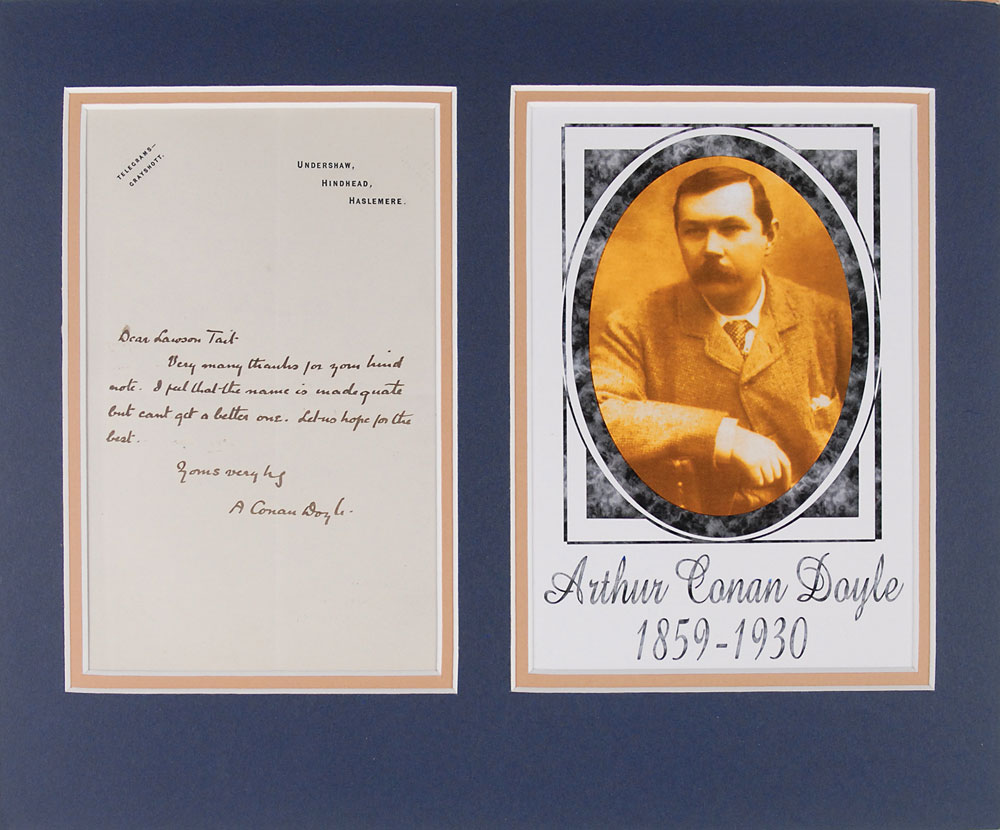 TELEGRAMS—
GRAYSHOTT.
UNDERSHAW,
HINDHEAD,
HASLEMERE.
Dear Lawson Tait
Very many thanks for your kind
note. I feel that the name is inadequate
but cant get a better one. Let us hope for the
best.
Yours very
A Conan Doyle.
Arthur Conan Doyle
1859-1930